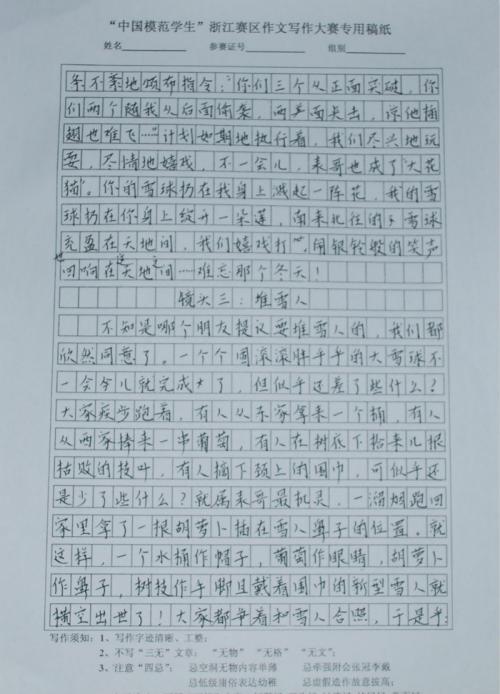 “中国模范学生”浙江赛区作文写作大赛专用稿纸
姓名 参赛证号 组别
条不紊地颁布指令：“你们三个从正面突破，你
们两个随我从后面偷袭，两半面夹击，谅他插
翅也难飞……”计划如期地执行着，我们尽兴地玩
耍，尽情地嬉戏，不一会儿，表哥也成了“大花
猫”。你的雪球扔在我身上溅起一阵花，我的雪
球扔在你身上绽开一朵莲，南来北往的雪球
充盈在天地间，我们嬉戏打闹，银铃般的笑声
也回响在这天地之间……难忘那个冬天！
镜头三：堆雪人
不知是哪个朋友提议要堆雪人的，我们都
欣然同意了。一个个圆滚滚胖乎乎的大雪球不
一会儿就完成了，但似乎还差了些什么？
大家疾步跑着，有人从东家拿来一个桶，有人
从西家捧来一串葡萄，有人在树底下拾来几根
枯败的枝叶，有人摘下颈上的围巾，可似乎还
是少了些什么？就属表哥最机灵，一溜烟跑回
家里拿了一根胡萝卜插在雪人鼻子的位置。就
这样，一个水桶作帽子，葡萄作眼睛，胡萝卜
作鼻子，树枝作手脚且戴着围巾的新型雪人就
横空出世了！大家都争着和雪人合照，于是乎
写作须知：1、写作字迹清晰、工整；
2、不写“三无”文章： “无物” “无格” “无文”；
3、注意“四总”： 总空洞无物内容单薄 总牵强附会张冠李戴
总低级庸俗表达幼稚 总虚假造作故意拔高；